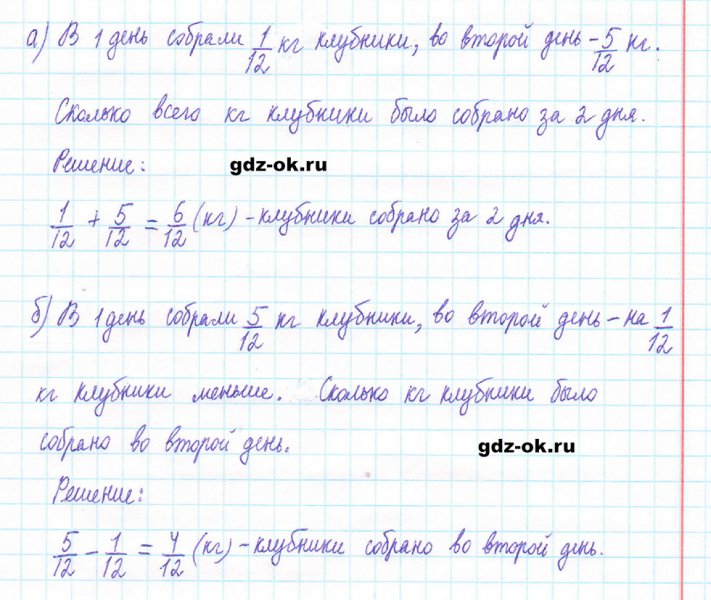 а) В 1 день собрали 1/12 кг клубники, во второй день - 5/12 кг.
Сколько всего кг клубники было собрано за 2 дня.
Решение: gdz-ok.ru
1/12 + 5/12 = 6/12 (кг) - клубники собрано за 2 дня.
б) В 1 день собрали 5/12 кг клубники, во второй день - на 1/12
кг клубники меньше. Сколько кг клубники было
собрано во второй день. gdz-ok.ru
Решение:
5/12 - 1/12 = 4/12 (кг) - клубники собрано во второй день.